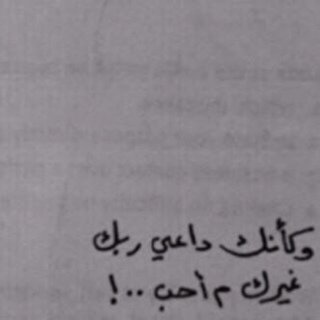 وكأنك داعي ربك
غيرك م أحب ..!